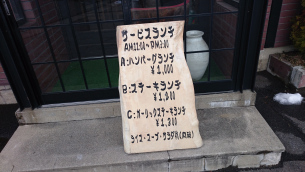 サービスランチ
AM11:00〜PM3:00
A:ハンバーグランチ
¥1,000
B:ステーキランチ
¥1,300
C:ガーリックステーキランチ
¥1,300
ライス・スープ・サラダ付